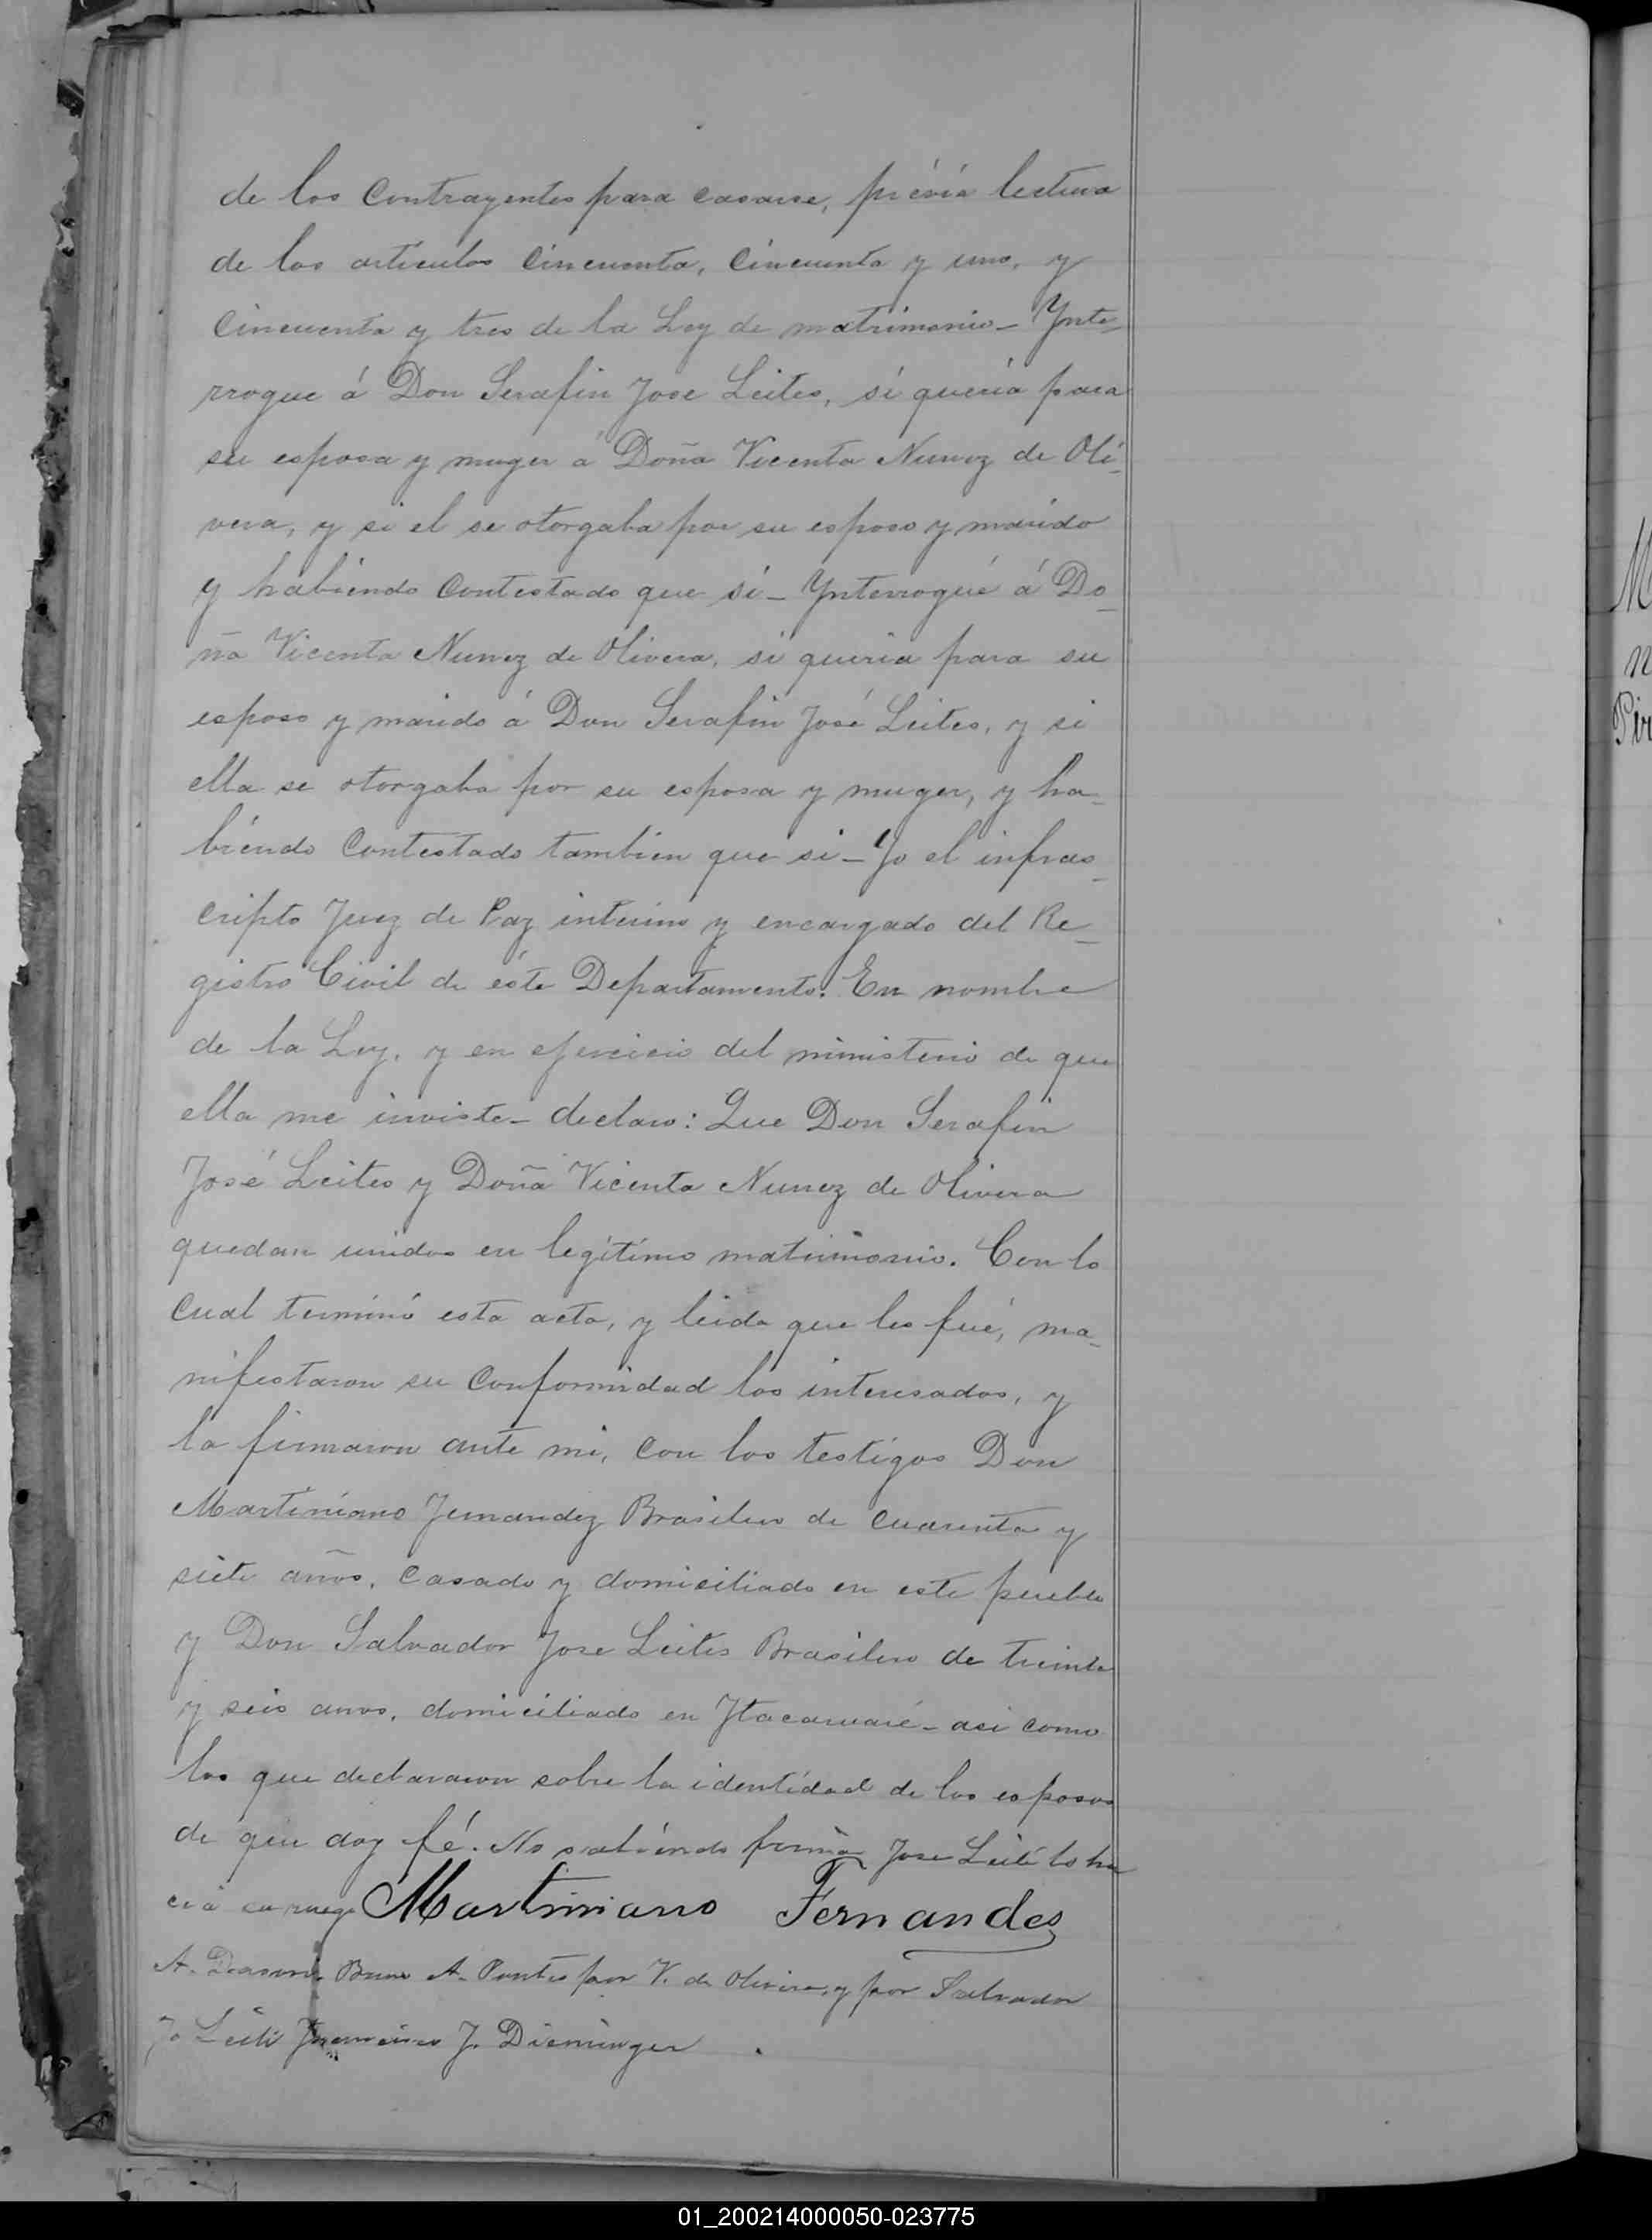 de los Contrayentes para casarse, prévia lectura
de los artículos Cincuenta, Cincuenta y uno, y
Cincuenta y tres de la Ley de matrimonio_ Ynte_
rrogue á Don Serafin Jose Leites, si queria para
su esposa y muger á Doña Vicenta Nunez de Oli_
vera, y si el se otorgaba por su esposo y marido
y habiendo Contestado que si_ Ynterrogué á Do_
ña Vicenta Nunez de Olivera, si queria para su
esposo y marido á Don Serafin José Leites, y si
ella se otorgaba por su esposa y muger, y ha_
biendo Contestado tambien que si_ Yo el infras_
cripto Juez de Paz interino y encargado del Re_
gistro Civil de éste Departamento. En nombre
de la Ley, y en ejercicio del ministerio de que
ella me inviste_ declaro: Que Don Serafin
José Leites y Doña Vicenta Nunez de Olivera
quedan unidos en legítimo matrimonio. Con lo
Cual terminó esta acta, y leida que les fué, ma_
nifestaron su Conformidad los interesados, y
la firmaron ante mi, Con los testigos Don
Martiniano Fernandez Brasilero de Cuarenta y
siete años, Casado y domiciliado en este pueblo
y Don Salvador Jose Leites Brasilero de treinta
y seis anos, domiciliado en Itacaruaré_ asi como
los que declararon sobre la identidad de los esposos
de que doy fé. No sabiendo firmar Jose Leite lo ha
cia su ruego Martiniano Fernandes
A. Bruno A. Puntes por V. de Olivera, y por Salvador
Jo Leite Francisco J. Dieminger
01_200214000050-023775